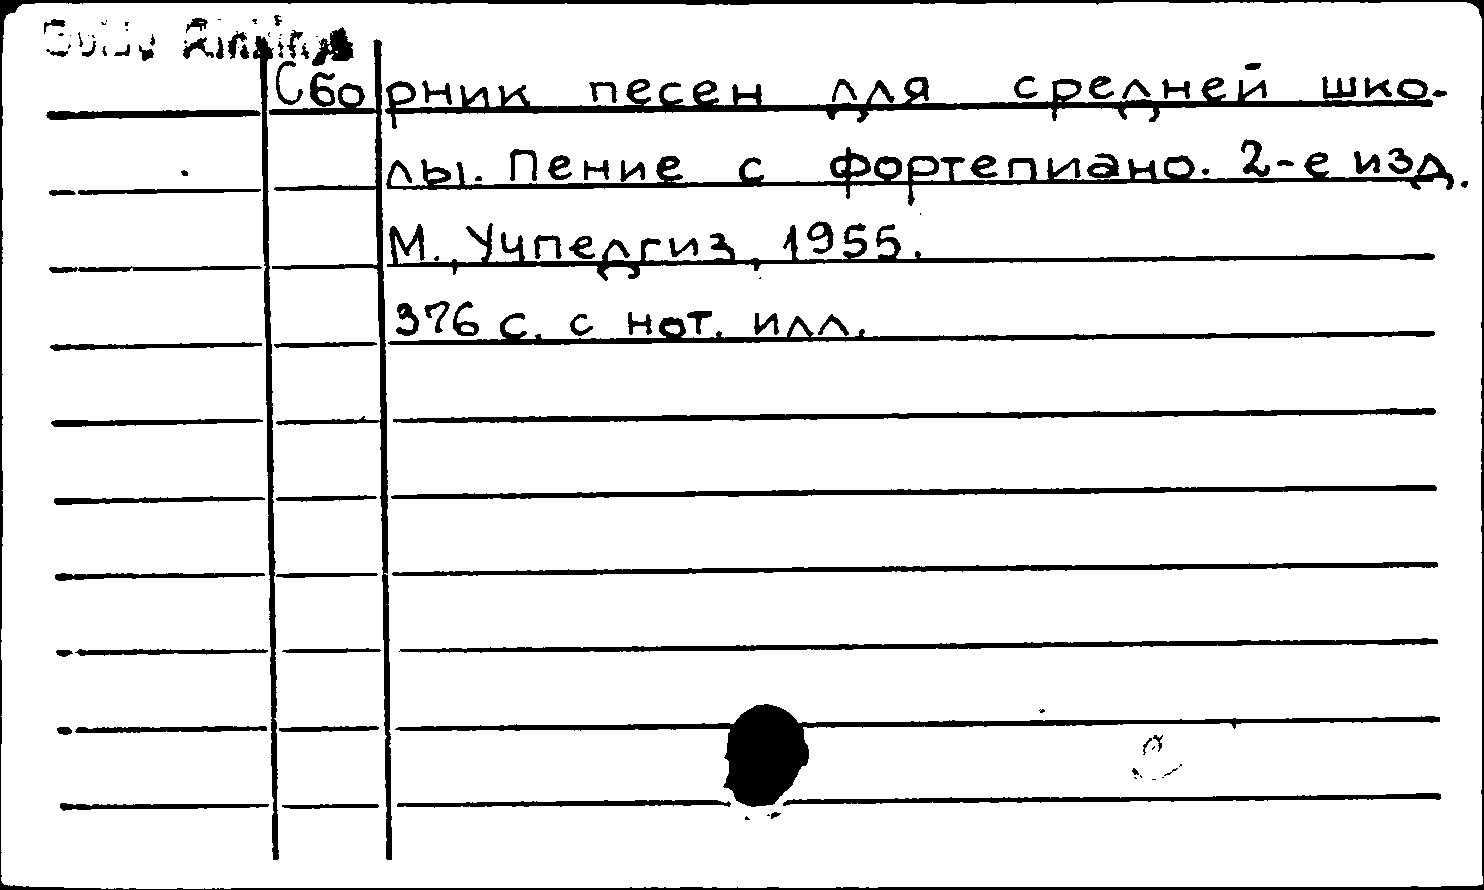 Сборник песен для средней шко-
лы. Пение с фортепиано. 2-е изд.
М., Учпедгиз, 1955.
376 с. с нот. илл.